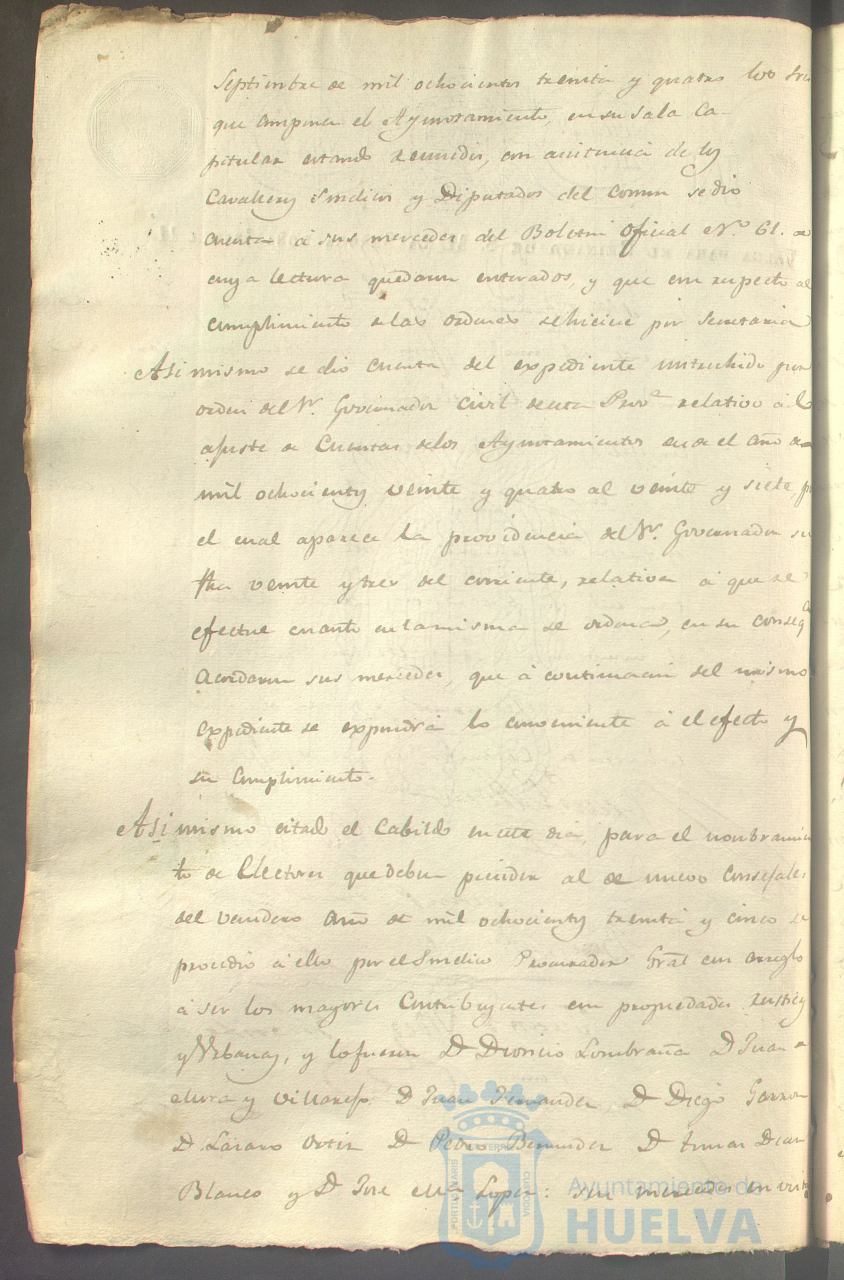 Septiembre de mil ochocientos treinta y quatro los Sres
que componen el Ayuntamiento, en su sala Ca-
pitular estando reunidos, con asistencia de los
Cavalleros Sindicos y Diputados del comun se dio
cuenta á sus mercedes del Boletin Oficial N.º 61. de
cuya lectura quedaron enterados, y que con respecto al
cumplimiento de las ordenes se hiciese por Secretaria
Asi mismo se dio cuenta del expediente instruhido por
orden del Sr. Governador Civil de esta Prov.ª relativo á el
ajuste de Cuentas de los Ayuntamientos desde el año de
mil ochocientos veinte y quatro al veinte y siete, p
el cual aparece la providencia del Sr. Governador su
fha veinte y tres del corriente, relativa á que se
efectue cuanto en la misma se ordena, en su conseqª
Acordaron sus mercedes, que á continuacion del mismo
expediente se expondrá lo conveniente á el efecto y
su cumplimiento.
Asi mismo citado el Cabildo en este dia, para el nonbramien
to de Electores que deben preceder al de nuevos Consejales
del venidero año de mil ochocientos treinta y cinco se
procedió á ello por el Sindico Procurador Gral con arreglo
á ser los mayores Contribuyentes en propiedades rusticas
y Urbanas, y lo fueron D. Dionicio Lombraña D. Juan de
Mora y Villarejo D. Juan Fernandez, D. Diego Garzon
D. Lázaro Ortiz D. Pedro Bermudez D. Tomas Diaz
Blanco y D. Jose M.ª Lopez: sus mercedes en virtud
Ayuntamiento de
HUELVA